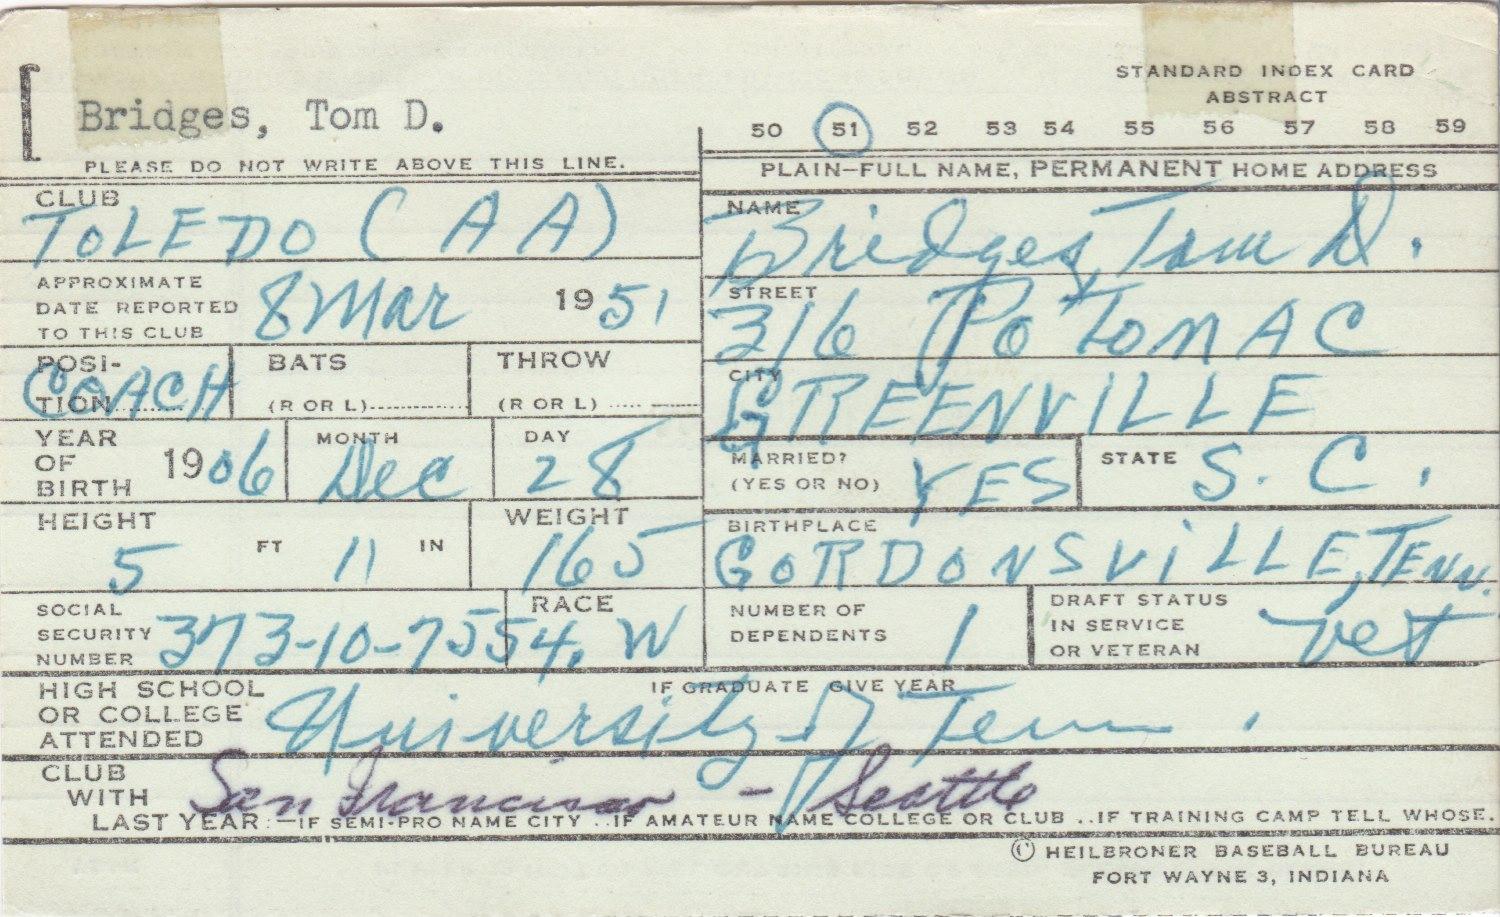 STANDARD INDEX CARD
ABSTRACT
Bridges, Tom D.
50 51 52 53 54 55 56 57 58 59
PLEASE DO NOT WRITE ABOVE THIS LINE.
PLAIN-FULL NAME, PERMANENT HOME ADDRESS
CLUB
TOLEDO (AA)
NAME
Bridges, Tom D.
APPROXIMATE
DATE REPORTED
TO THIS CLUB
8 Mar 1951
STREET
316 POTOMAC
POSI-
TION
COACH
BATS
(R OR L)
THROW
(R OR L)
CITY
GREENVILLE
YEAR
OF
BIRTH
1906
MONTH
Dec
DAY
28
MARRIED?
(YES OR NO)
YES
STATE
S. C.
HEIGHT
5 FT 11 IN
WEIGHT
165
BIRTHPLACE
GORDONSVILLE, TENN.
SOCIAL
SECURITY
NUMBER
373-10-7554.
RACE
W
NUMBER OF
DEPENDENTS
1
DRAFT STATUS
IN SERVICE
OR VETERAN
Vet
HIGH SCHOOL
OR COLLEGE
ATTENDED
IF GRADUATE GIVE YEAR
University of Tenn.
CLUB
WITH
LAST YEAR:
San Francisco - Seattle
—IF SEMI-PRO NAME CITY ..IF AMATEUR NAME COLLEGE OR CLUB ..IF TRAINING CAMP TELL WHOSE.
© HEILBRONER BASEBALL BUREAU
FORT WAYNE 3, INDIANA